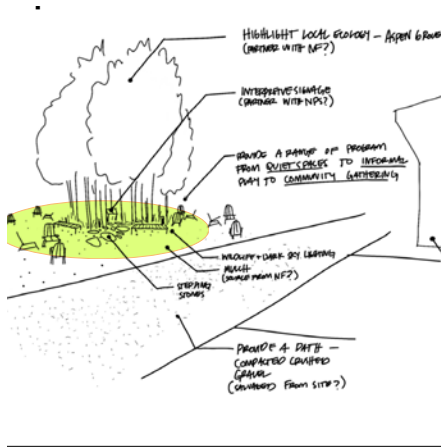 HIGHLIGHT LOCAL ECOLOGY - ASPEN GROVE
(PARTNER WITH NF?)
INTERPRETIVE SIGNAGE
(PARTNER WITH NPS?)
PROVIDE A RANGE OF PROGRAM
FROM QUIET SPACES TO INFORMAL
PLAY TO COMMUNITY GATHERING
WILDLIFE + DARK SKY LIGHTING
MULCH
(SOURCE FROM NF?)
STEPPING
STONES
PROVIDE A PATH -
COMPACTED CRUSHED
GRAVEL
(SALVAGED FROM SITE?)